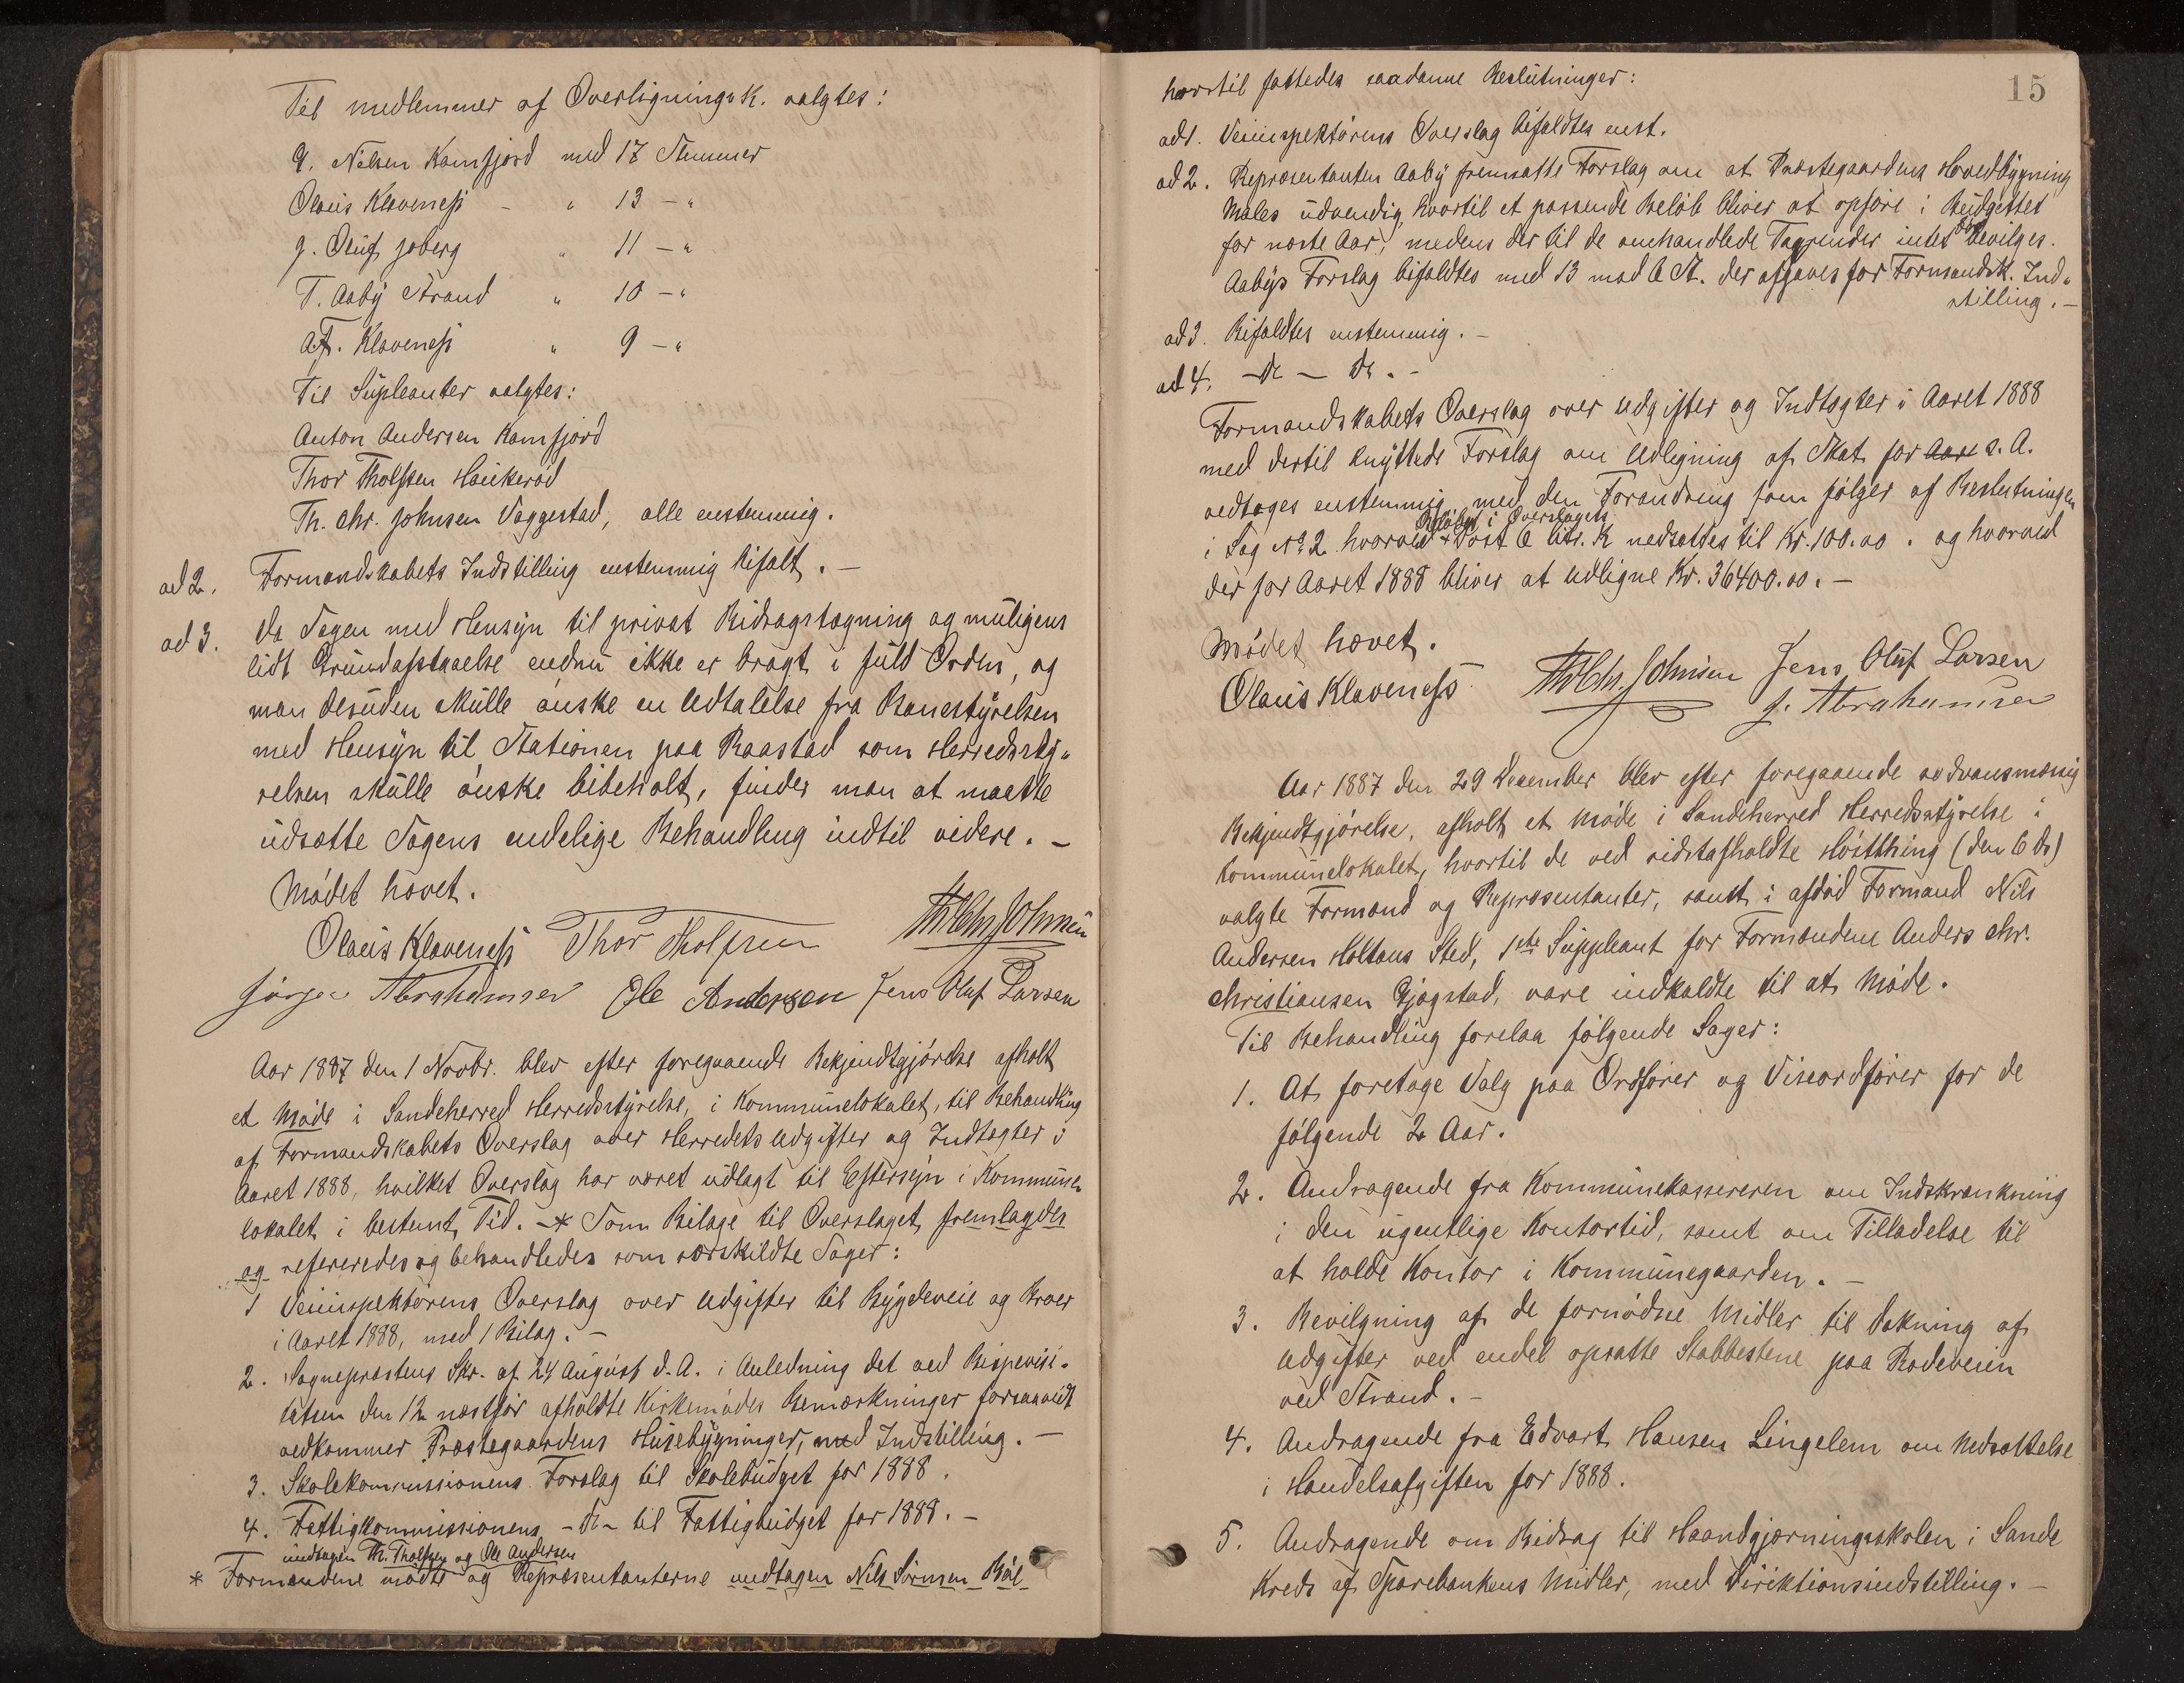 Til medlemmer af Overlignings K. valgtes:
A. Nilsen Kamfjord med 17 Stemmer
Olaus Klaveness - " 13 - "
J. Oluf Joberg " 11 - "
T. Aaby Strand " 10 - "
A.F. Klaveness " 9 - "
Til Supleanter valgtes:
Anton Andersen Kamfjord
Thor Tholfsen Haukerød
Th. Chr. Johnsen Vaggestad, alle enstemmig.
ad 2. Formandskabets Indstilling enstemmig bifalt. -
ad 3. Da Sagen med Hensyn til privat Bidragstegning og muligens
lidt Grundafstaaelse endnu ikke er bragt i fuld Orden, og
man desuden skulle ønske en Udtalelse fra Banestyrelsen
med Hensyn til Stationen paa Raastad som Herredssty-
relsen skulle ønske bibeholt, finder man at maatte
udsætte Sagens endelige Behandling indtil videre. -
Mødet hævet.
Olaus Klaveness Thor Tholfsen Th Chr Johnsen
Jørgen Abrahamsen Ole Andersen Jens Oluf Larsen
Aar 1887 den 1 Novbr. blev efter foregaaende Bekjendtgjørelse afholt
et Møde i Sandeherred Herredsstyrelse, i Kommunelokalet, til Behandling
af Formandskabets Overslag over Herredets Udgifter og Indtægter i
Aaret 1888, hvilket Overslag har været udlagt til Eftersyn i Kommune
lokalet i bestemt Tid. -* Som Bilage til Overslaget fremlagdes
og refereredes og behandledes som særskildte Sager:
1 Veiinspektørens Overslag over Udgifter til Bygdeveie og Broer
i Aaret 1888, med 1 Bilag. -
2. Sogneprestens Skr. af 24 August d.A. i Anledning det ved Bispevisi-
tatsen den 12 næstfør afholdte Kirkemødes Bemærkninger forsaavidt
vedkommer Præstegaardens Husebygninger, med Indstilling. -
3. Skolekommissionens Forslag til Skolebudget for 1888.
4. Fattigkommissionens - do - til Fattigbudget for 1888. -
undtagen Th. Tholfsen og Ole Andersen
* Formændene mødte og Repræsentanterne undtagen Nils Sørensen Bøl
15
hvortil fattedes saadanne Beslutninger:
ad 1. Veiinspektørens Overslag bifaldtes enst.
ad 2. Repræsentanten Aaby fremsatte Forslag om at Præstegaardens Hovedbygning
Males udvendig, hvortil et passende Beløb bliver at opføre i Budgettet
for næste Aar, medens der til de omhandlede Tagrender intet bevilges.
Aabys Forslag bifaldtes med 13 mod 6 St. der afgaves for Formandsk. Ind-
stilling. -
ad 3. Bifaldtes enstemmig. -
ad 4. - do - do. -
Formandskabets Overslag over Udgifter og Indtægter i Aaret 1888
med dertil knyttede Forslag om Udligning af Skat for Aare s. A.
vedtages enstemmig med den Forandring som følger af Beslutningen
Beløbet i Overslagets
i Sag No 2 hvorved + Post 6 litr. K nedsættes til Kr. 100.00. og hvorved
der for Aaret 1888 bliver at udligne Kr. 36400.00. -
Mødet hævet.
Olaus Klaveness Th Chr. Johnsen Jens Oluf Larsen
J. Abrahamsen
Aar 1887 den 29 December blev efter foregaaende sædvansmæssig
Bekjendtgjørelse, afholt et Møde i Sandeherred Herredsstyrelse i
Kommunelokalet, hvortil de ved sidstafholdte Høstthing (den 6 ds)
valgte Formænd og Repræsentanter, samt i afdød Formand Nils
Andersen Holtans Sted, 1ste Suppleant for Formændene Anders Chr.
Christiansen Gjøgstad, vare indkaldte til at Møde.
Til Behandling forelaa følgende Sager:
1. At foretage Valg paa Ordfører og Viseordfører for de
følgende 2 Aar.
2. Andragende fra Kommunekassereren om Indskrænkning
i den ugentlige Kontortid, samt om Tilladelse til
at holde Kontor i Kommunegaarden. -
3. Bevilgning af de fornødne Midler til Dækning af
Udgifter ved endel opsatte Stabbestene paa Rodeveien
ved Strand. -
4. Andragende fra Edvart Hansen Lingelem om Nedsættelse
i Handelsafgiften for 1888.
5. Andragende om Bidrag til Haandgjerningsskolen i Sande
Kreds af Sparebankens Midler, med Direktionsindstilling. -